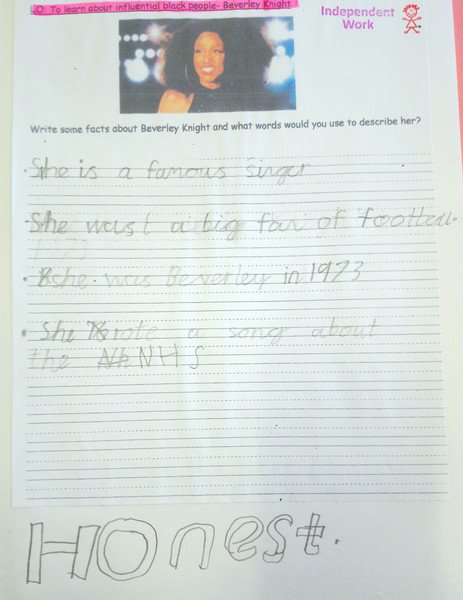 LO: To learn about influential black people- Beverley Knight
Independent
Work
Write some facts about Beverley Knight and what words would you use to describe her?
• She is a famous singer
• She wast a big fan of football.
• she was Beverley in 1973
• She rote a song about
the NHS
Honest.